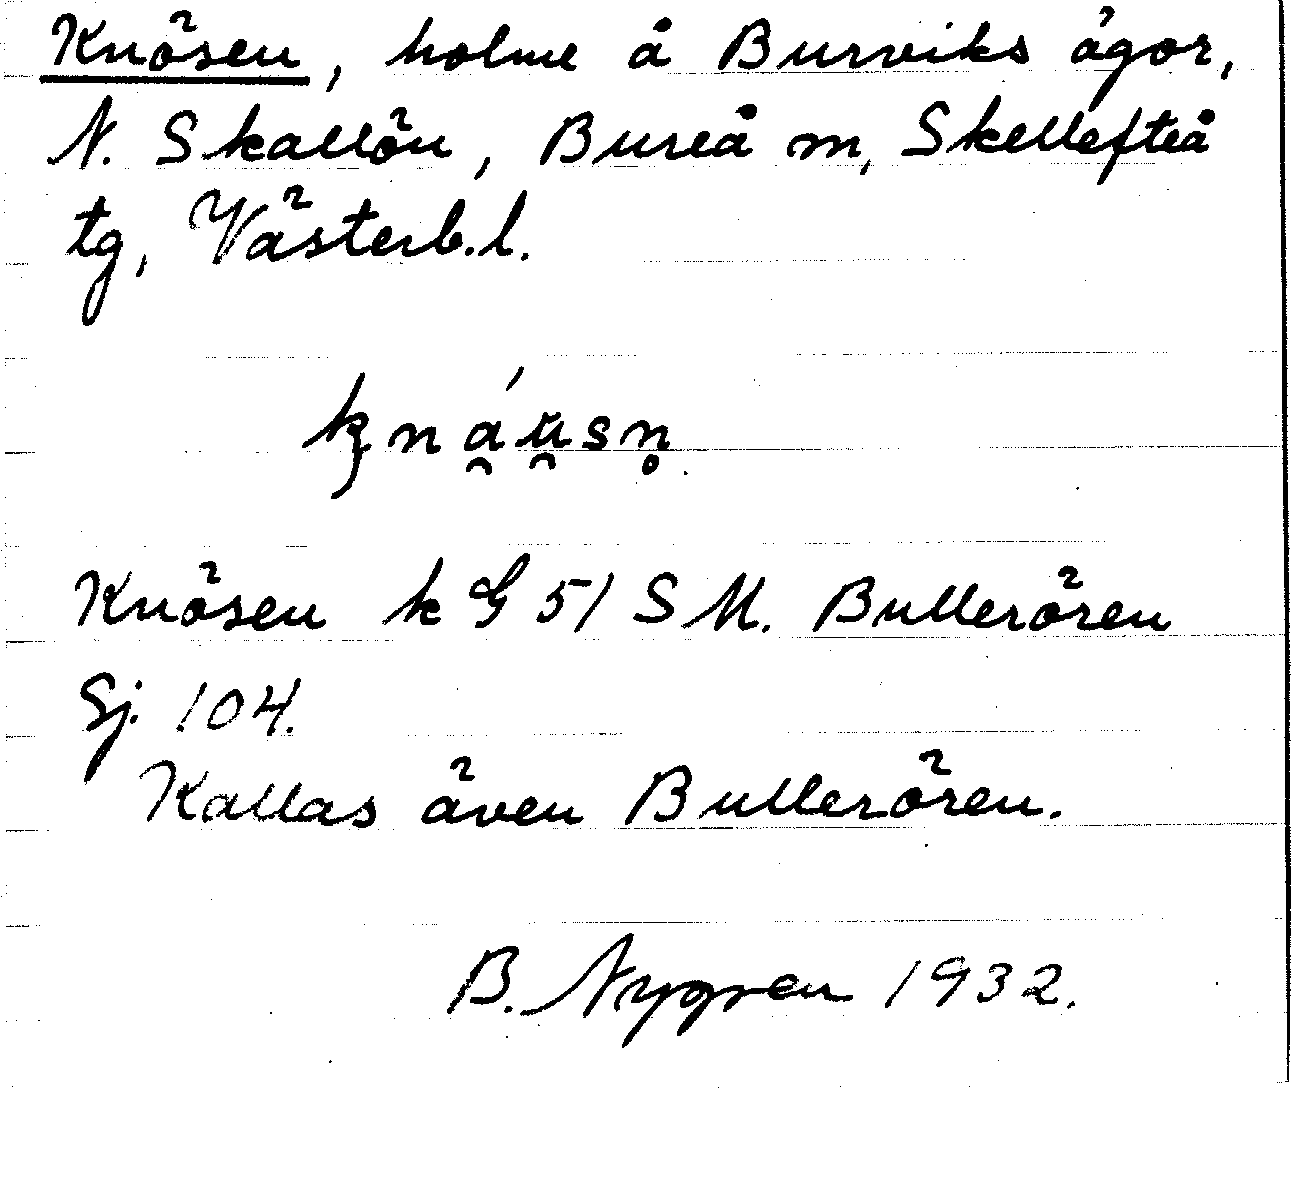 Knösen, holme å Burviks ägor,
N. Skallön, Bureå m, Skellefteå
tg, Västerb.l.
Knösen k G 51 S M. Bullerören
Sj. 104.
Kallas även Bullerören.
B. Nygren 1932.